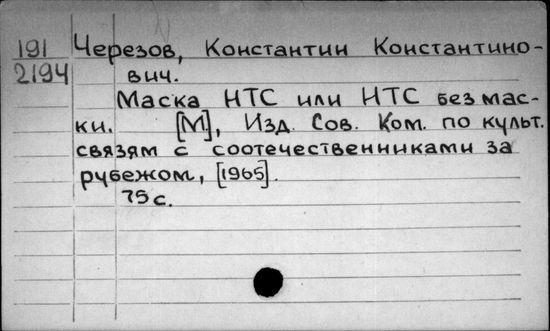 191 Черезов, Константин Константино-
2194 вич.
Маска НТС или НТС без мас-
ки. [М.], Изд. Сов. Ком. по культ.
связям с соотечественниками за
рубежом, [1965].
75 с.